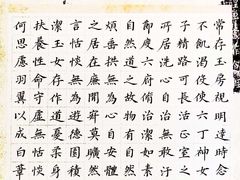 常存玉房視明達時念
不飢渴役使六丁神女
子精路可長活正室之
所居洗心自治無敢汙
節度六府脩治潔如素
自然道之故物有自然
煩垂拱無為心自安體
之居在廉間寂莫曠然
言恬惔無為遊德園積
潔玉女存作道憂柔身
扶養性命守虛無恬惔
何思慮羽翼以成